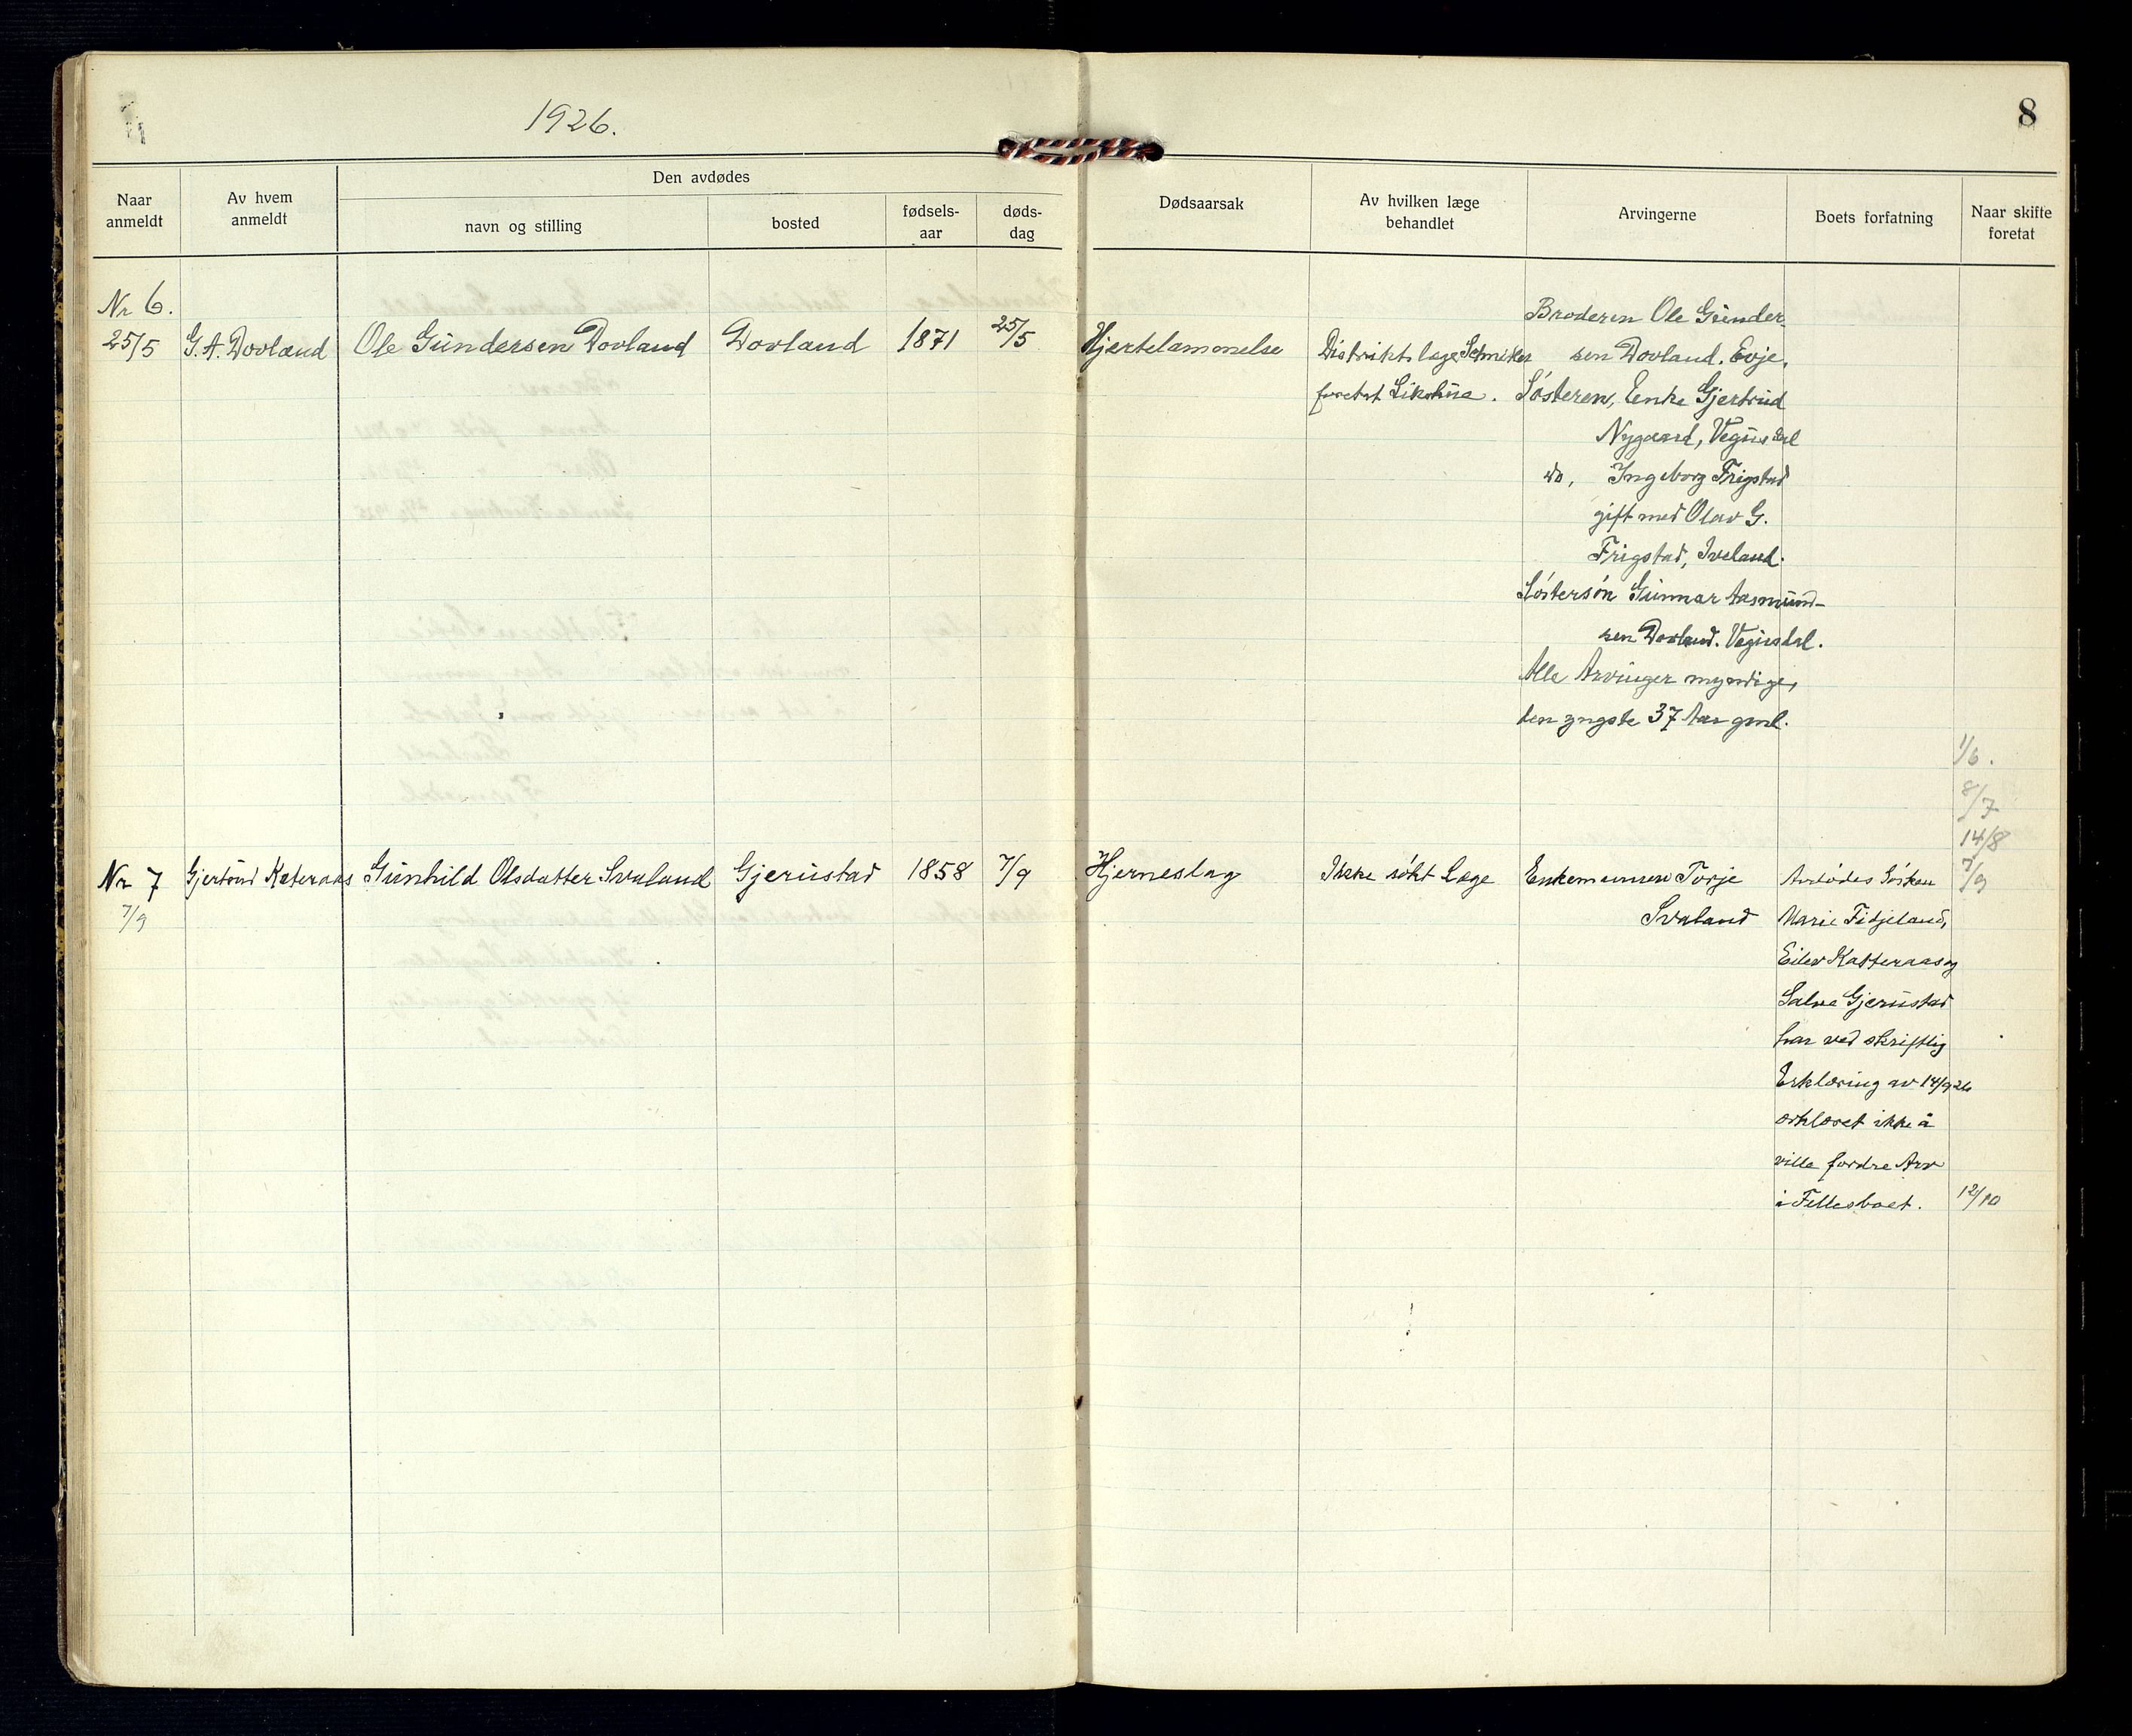 1926.
8
Naar anmeldt
Av hvem anmeldt
Den avdødes
navn og stilling
bosted
fødsels-aar
døds-dag
Dødsaarsak
Av hvilken læge behandlet
Arvingerne
Boets forfatning
Naar skifte foretat
Nr 6.
25/5
G. A. Dovland
Ole Gundersen Dovland
Dovland
1871
25/5
Hjertelammelse
Distriktslæge
foretat Likskue.
Broderen Ole Gunder-
sen Dovland. Evje.
Søsteren, Enke Gjertrud
Nygaard, Vegusdal
do, Ingeborg Frigstad
gift med Olav G.
Frigstad, Iveland.
Søstersøn Gunnar Aasmund-
sen Dovland. Vegusdal.
Alle Arvinger myndige,
den yngste 37 Aar gml.
1/6.
8/7
14/8
7/9
Nr 7
7/9
Gjertrud Kateraas
Gunhild Olsdatter Svaland
Gjerustad
1858
7/9
Hjerneslag
Ikke søkt Læge
Enkemannen Torje
Svaland
Avdødes Søsken
Marie Fidjeland,
Eilev Katteraas og
Salve Gjerustad
har ved skriftlig
Erklæring av 14/9 26
erklæret ikke å
ville fordre Arv
i Fellesboet.
12/10